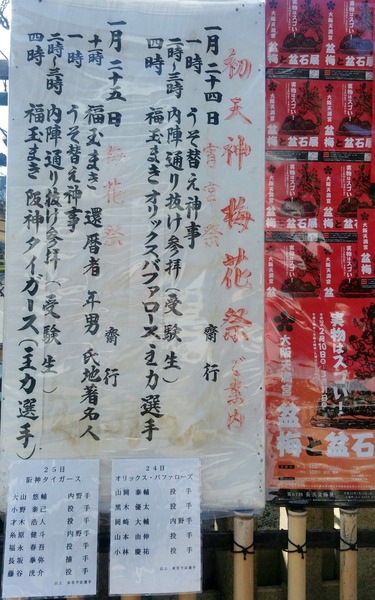 初天神梅花祭ご案内
一月二十四日 宵宮祭 齋行
一時 うそ替え神事
二時〜三時 内陣通り抜け参拝(受験生)
四時 福玉まき オリックスバファローズ主力選手
一月二十五日 梅花祭 齋行
十時 福玉まき 還暦者 年男 氏地著名人
一時 うそ替え神事
二時〜三時 内陣通り抜け参拝(受験生)
四時 福玉まき 阪神タイガース(主力選手)
24日
オリックス・バファローズ
山岡 泰輔 投手
黒木 優太 投手
岡﨑 大輔 内野手
山本 由伸 投手
小林 慶祐 投手
以上 来宮予定選手
25日
阪神タイガース
大山 悠輔 内野手
小野 泰己 投手
才木 浩人 投手
糸原 健斗 内野手
福永 春吾 投手
長坂 拳弥 捕手
藤谷 洸介 投手
以上 来宮予定選手
大阪天満宮
盆梅と盆石展
実物はスゴい!
2月10日